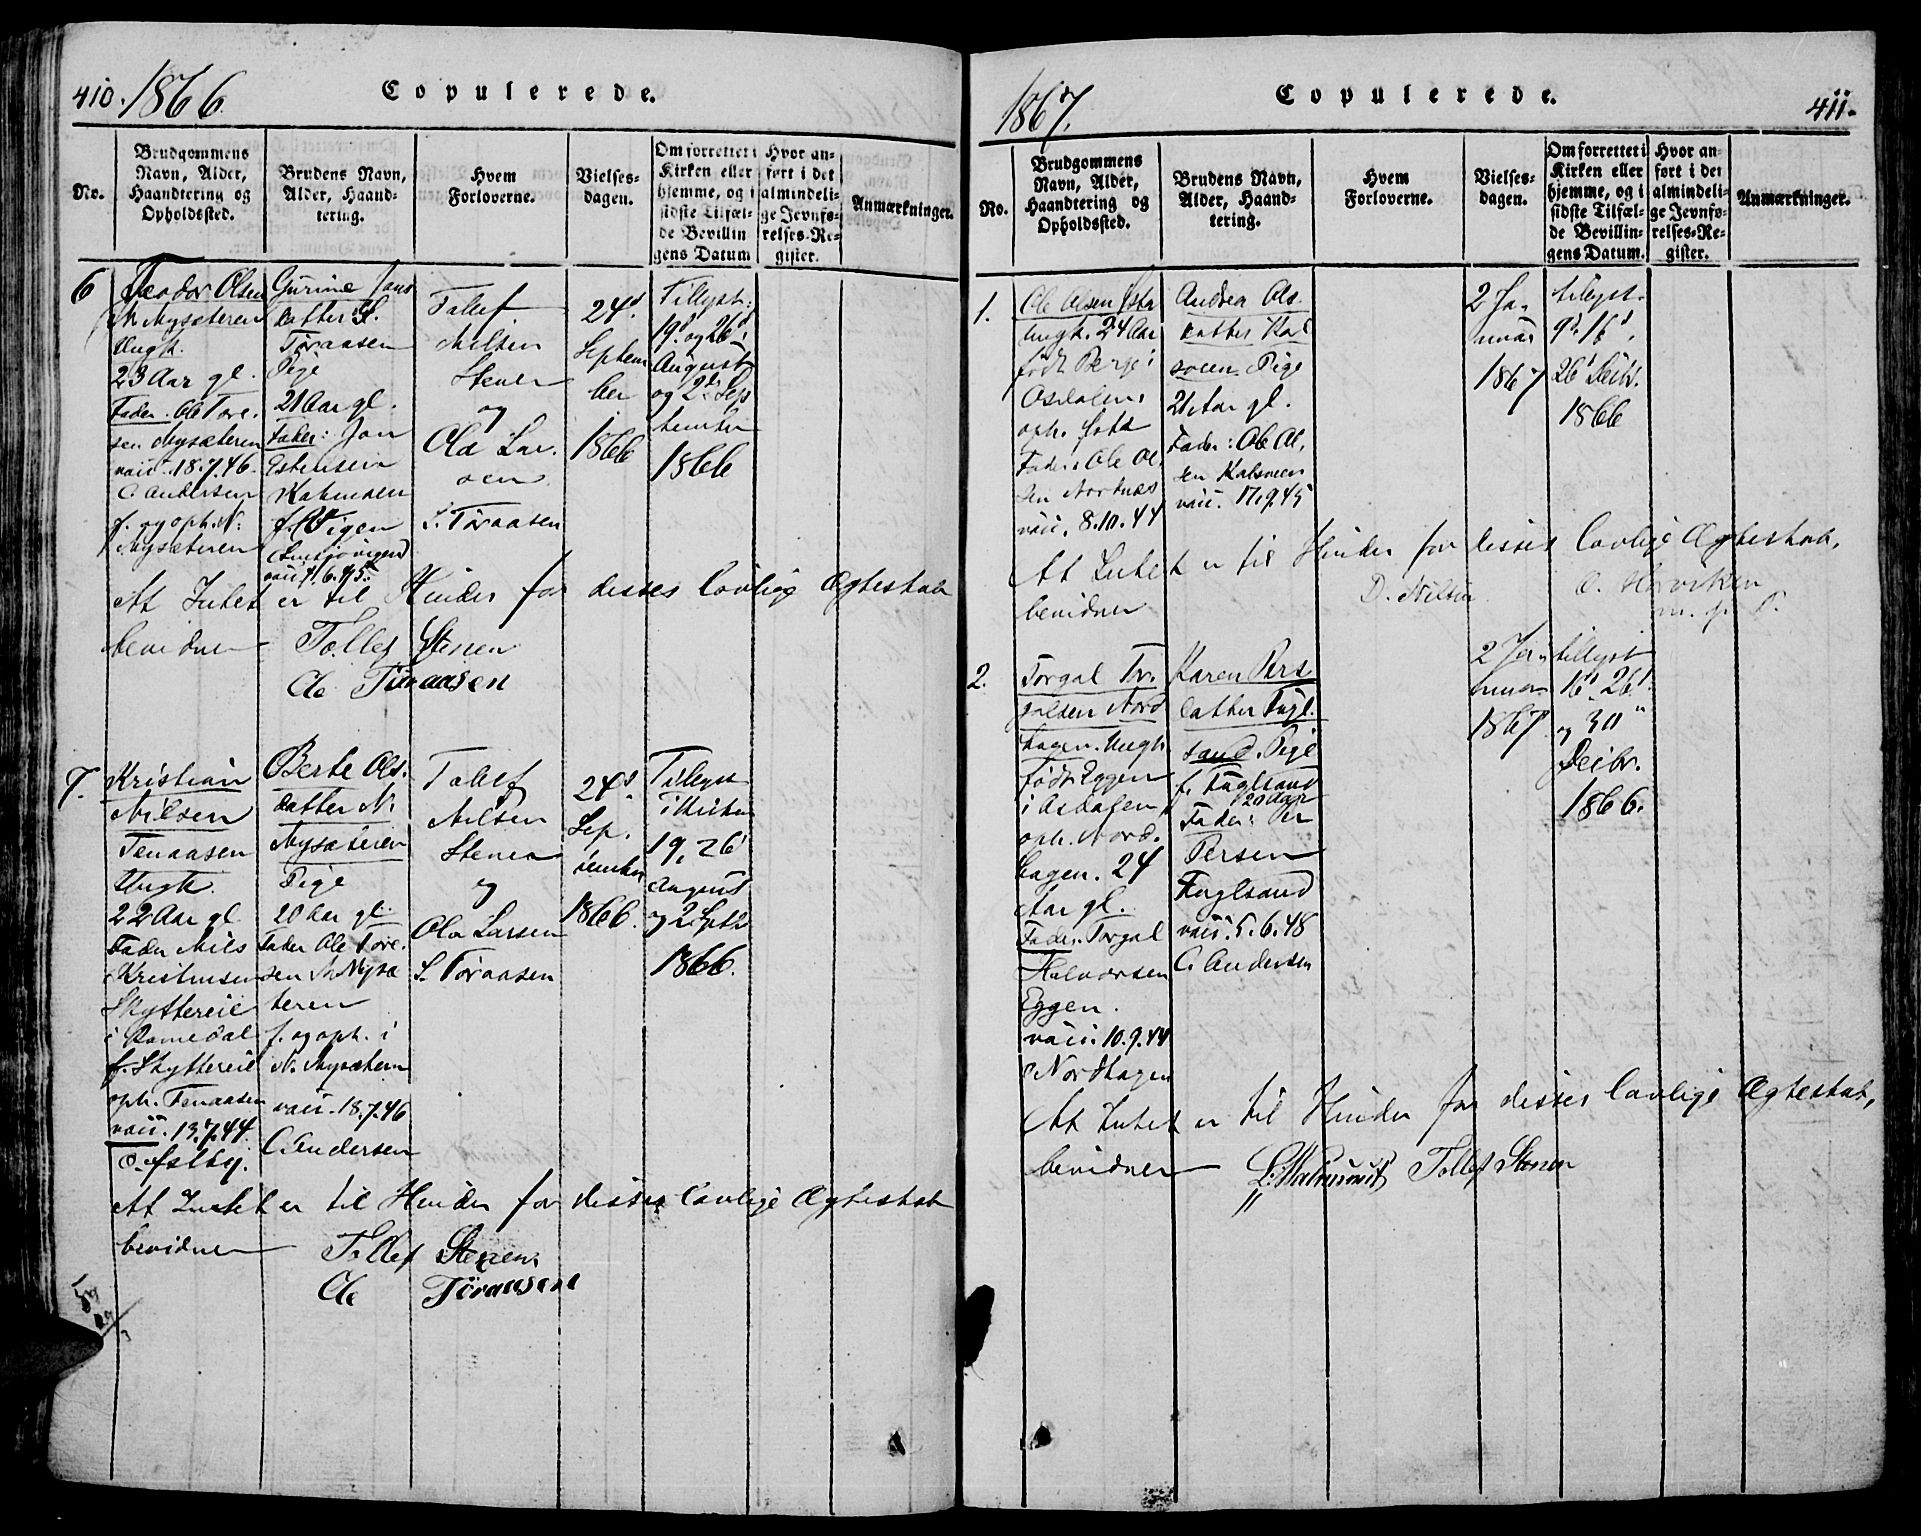 410. 1866. Copulerede.
No.
Brudgommens
Navn, Alder,
Haandtering og
Opholdssted.
Brudens Navn,
Alder, Haand-
tering.
Hvem
Forloverne.
Vielses-
dagen.
Om forrettet i
Kirken eller
hjemme, og i
sidste Tilfæl-
de Bevillin
gens Datum
Hvor an-
ført i det
almindeli-
ge Jevnfø-
relses-Re-
gister.
Anmærkninger.
6
Teodor Olsen
N. Nysæteren
Ungk.
23 Aar gl.
Fader. Ole Tore-
sen Nysæteren
vacc. 18.7.46.
C. Andersen
f. og oph. N.
Nysæteren
Gurine Jons
datter S.
Töraasen
Pige
21 Aar gl.
Fader: Jon
Estensen
f. Vigen
vacc. 6.45.
Tollef
Nilsen
Stenen
og
Ola Lar-
sen
S. Töraasen
24d
Septem
ber
1866
Tillyst:
19d og 26d
August
og 2d Sep
tember
1866
At Intet er til Hinder for disses lovlige Ægteskab
bevidner Tollef Stenen
Ole Töraasen
7.
Kristian
Nilsen
Tenaasen
Ungk.
22 Aar gl
Fader Nils
Kristensen
Skyttereie
i Romedal
f. Skyttereie
oph. Tenaasen
vacc. 13.7.44.
Berte Ols-
datter N.
Nysæteren
Pige
20 Aar gl.
Fader Ole Tore-
sen N. Nysæ
teren
f. og oph. i
N. Nysætern
vacc. 18.7.46
C. Andersen
Tollef
Nilsen
Stenen
og
Ola Larsen
S. Töraasen
24d
Sep-
tember
1866.
Tillyst
i Kirken
19, 26
August
og 2 Septb
1866.
At Intet er til Hinder for disses lovlige Ægteskab
bevidner Tollef Stenen
Ole Töraasen
1867. Copulerede. 411.
No.
Brudgommens
Navn, Alder,
Haandtering og
Opholdssted.
Brudens Navn,
Alder, Haand-
tering.
Hvem
Forloverne.
Vielses-
dagen.
Om forrettet i
Kirken eller
hjemme, og i
sidste Tilfæl-
de Bevillin-
gens Datum.
Hvor an-
ført i det
almindeli-
ge Jevnfø-
relses-Re-
gister.
Anmærkninger.
1.
Ole Olsen
Ungk. 24 Aar
født Berge i
Osdalen,
oph.
Fader: Ole Ol-
sen Nordnæs
vacc. 8.10.44
Andrea Ols-
datter Kol
sveen. Pige
21 Aar gl.
Fader: Ole Ol-
sen Kolsveen
vacc. 17.9.45
2 Ja-
nuar
1867
tillyst.
9d 16d,
26d Decbr.
1866
At Intet er til Hinder for disses lovlige Ægteskab,
bevidner D. Nilsen
2.
Torgal Tor-
galsen Nord
hagen. Ungk
født Eggen
oph. Nord-
hagen. 24
Aar gl.
Fader. Torgal
Halvorsen
Eggen.
vacc. 10.9.44
Nordhagen
Karen Pers
datter Fugl-
sand. Pige
f. Fuglsand
20 Aar
Fader: Per
Persen
Fuglsand
vacc. 5.6.48
C. Andersen
2 Ja-
nuar
1867
tillyst
16d, 26d
og 30"
Decbr.
1866.
At Intet er til Hinder for disses lovlige Ægteskab,
bevidner Tollef Stenen